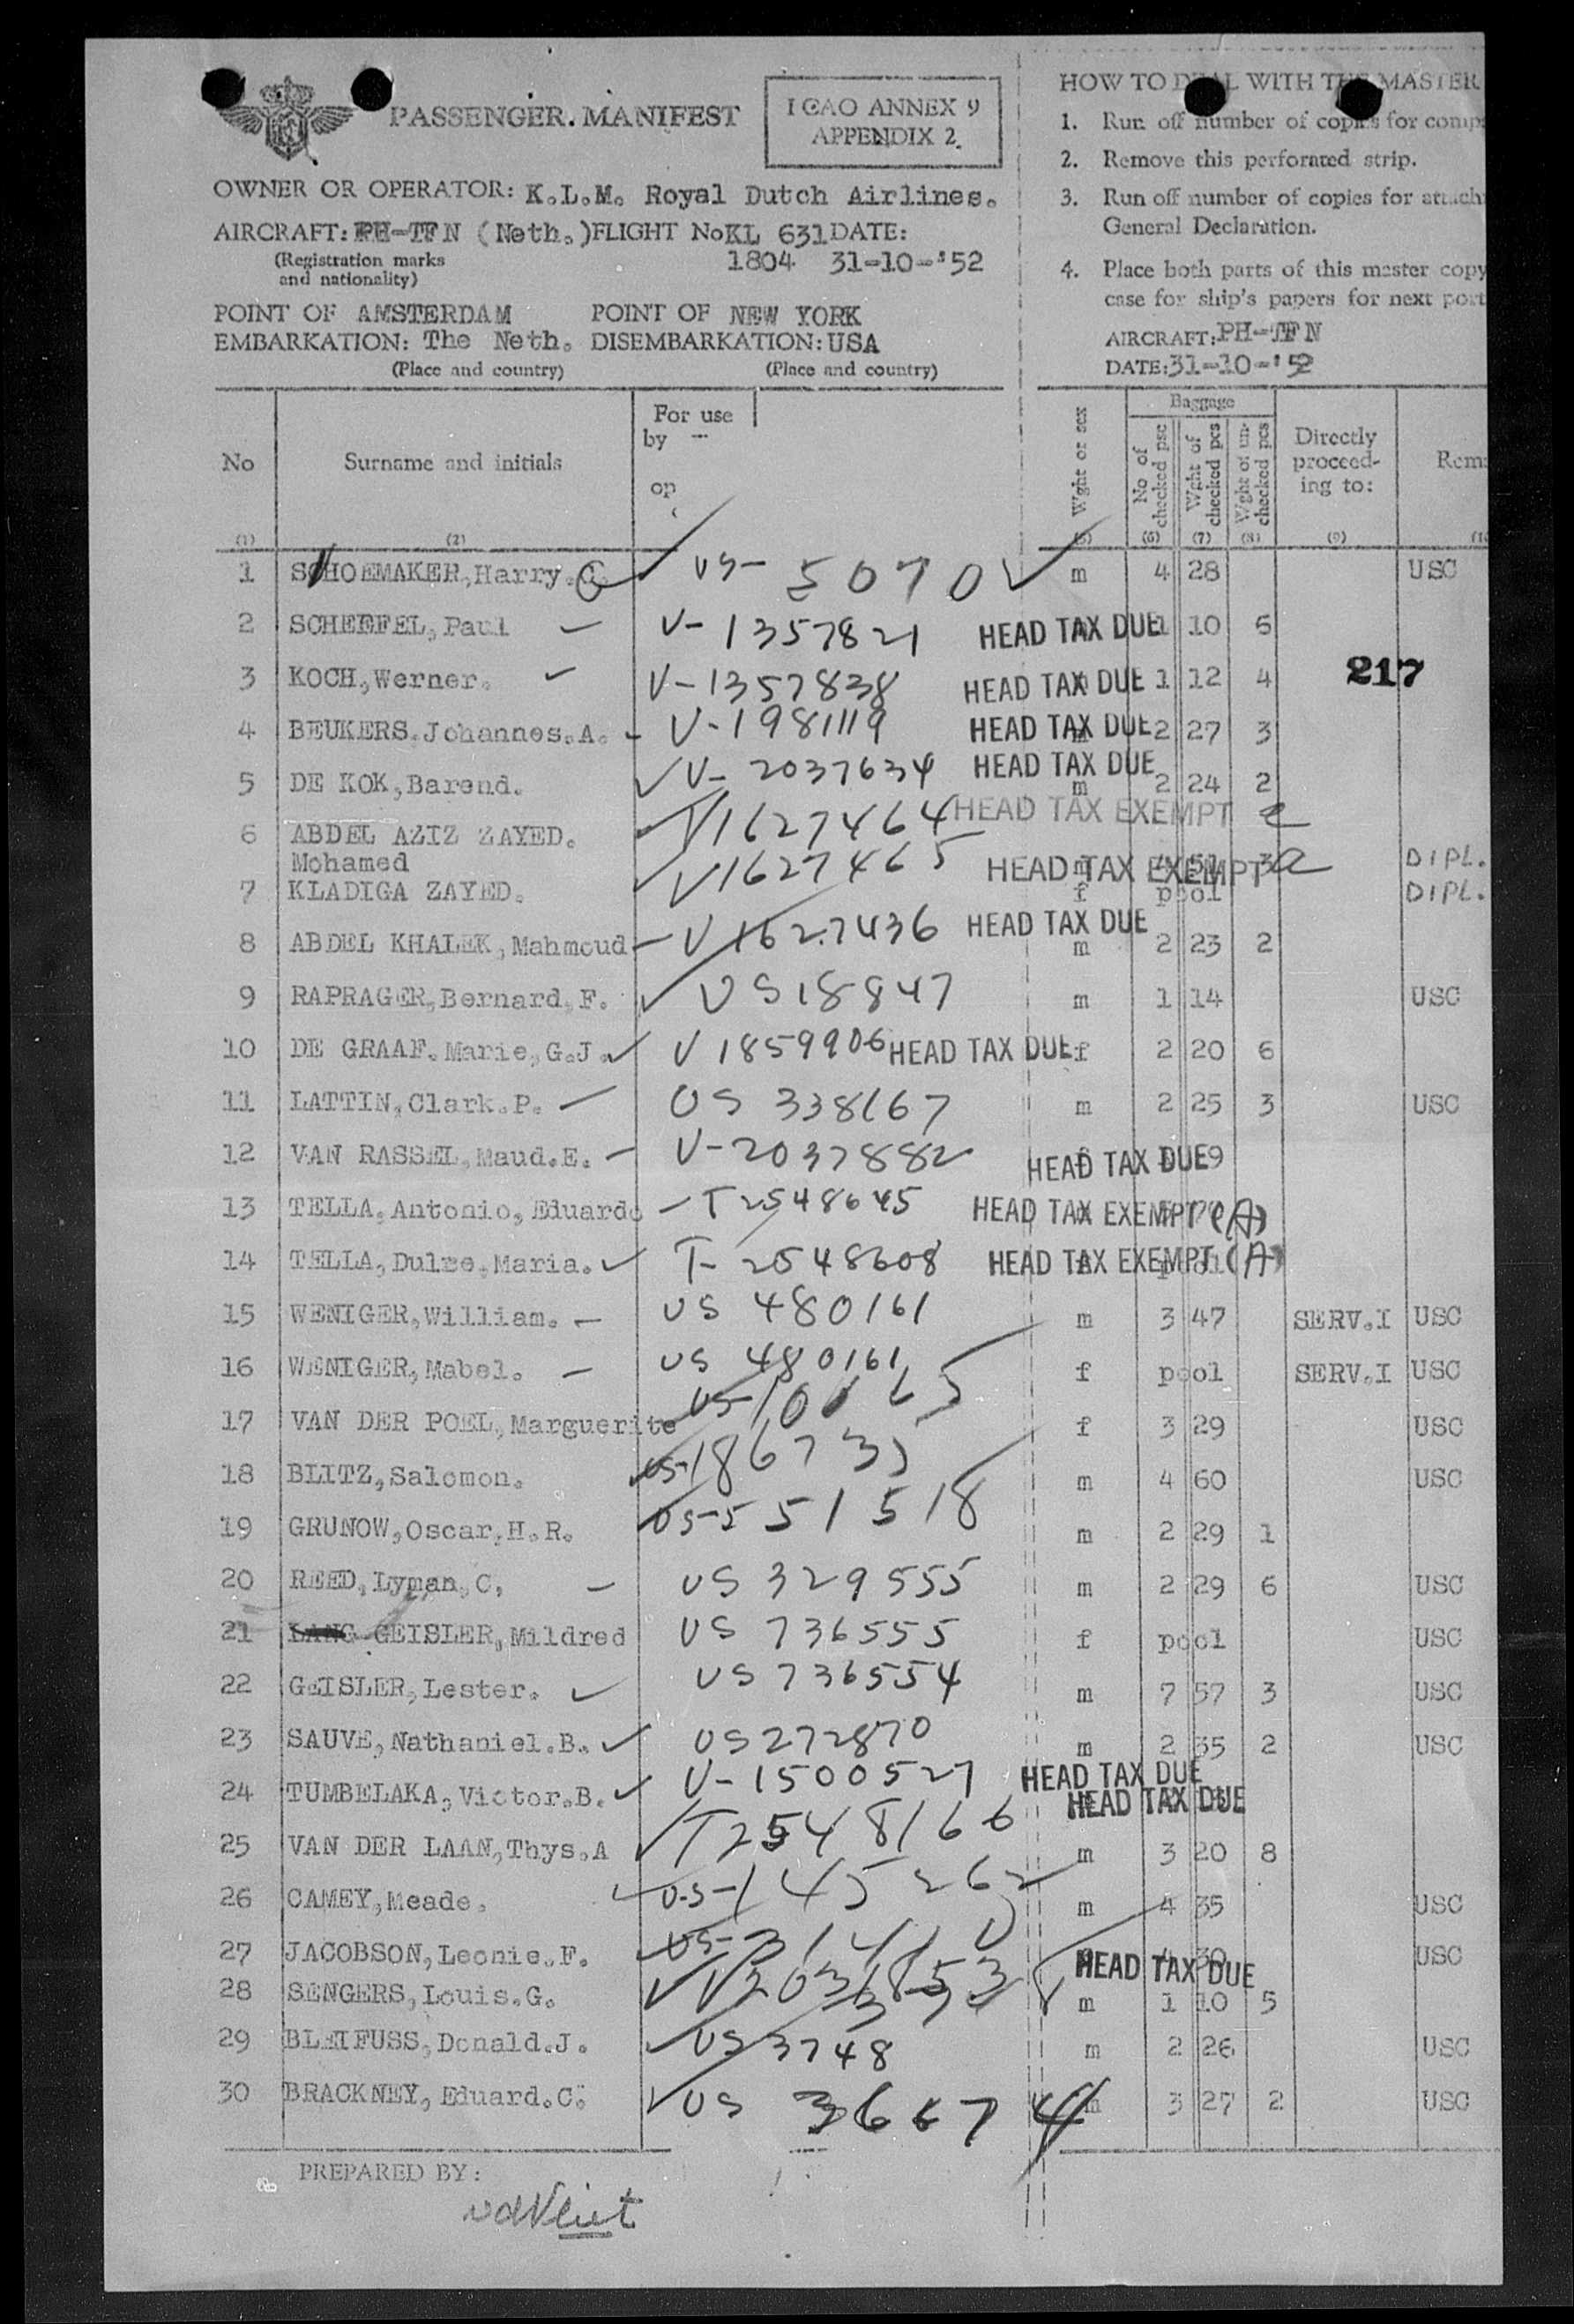 PASSENGER. MANIFEST
ICAO ANNEX 9
APPENDIX 2.
OWNER OR OPERATOR: K.L.M. Royal Dutch Airlines.
AIRCRAFT: PH-TFN (Neth.) FLIGHT No KL 631 DATE:
(Registration marks and nationality)
1804 31-10-'52
POINT OF AMSTERDAM POINT OF NEW YORK
EMBARKATION: The Neth. DISEMBARKATION: USA
(Place and country) (Place and country)
HOW TO DEAL WITH THE MASTER
1. Run off number of copies for comp
2. Remove this perforated strip.
3. Run off number of copies for attach
General Declaration.
4. Place both parts of this master copy
case for ship's papers for next port
AIRCRAFT: PH-TFN
DATE: 31-10-'52
No Surname and initials For use by - op
Wght or sex Baggage No of checked psc Wght of checked pcs Wght of un-checked pcs Directly proceed-ing to: Rem
(1) (2) (5) (6) (7) (8) (9) (1
1 SCHOEMAKER, Harry. G. US- 5070 m 4 28 USC
2 SCHEEFEL, Paul V-1357821 HEAD TAX DUE 1 10 6
217
3 KOCH, Werner. V-1357838 HEAD TAX DUE 1 12 4
4 BEUKERS. Johannes. A. V-1981119 HEAD TAX DUE 2 27 3
5 DE KOK, Barend. V-2037634 HEAD TAX DUE m 2 24 2
6 ABDEL AZIZ ZAYED. V1627464 HEAD TAX EXEMPT a
Mohamed m 51 3 DIPL.
7 KLADIGA ZAYED. V1627465 HEAD TAX EXEMPT a f pool DIPL.
8 ABDEL KHALEK, Mahmoud V1627436 HEAD TAX DUE m 2 23 2
9 RAPRAGER, Bernard, F. US 18847 m 1 14 USC
10 DE GRAAF. Marie, G.J. V 1859906 HEAD TAX DUE f 2 20 6
11 LATTIN, Clark. P. US 338167 m 2 25 3 USC
12 VAN RASSEL, Maud. E. V-2037882 HEAD TAX DUE 9
13 TELLA, Antonio, Eduardo T2548645 HEAD TAX EXEMPT (A)
14 TELLA, Dulre, Maria. T-2548608 HEAD TAX EXEMPT (A)
15 WENIGER, William. US 480161 m 3 47 SERV.I USC
16 WENIGER, Mabel. US 480161 f pool SERV.I USC
17 VAN DER POEL, Marguerite US-10065 f 3 29 USC
18 BLITZ, Salomon. US-186735 m 4 60 USC
19 GRUNOW, Oscar, H.R. US-551518 m 2 29 1
20 REED, Lyman, C, US 329555 m 2 29 6 USC
21 LANG GEISLER, Mildred US 736555 f pool USC
22 GEISLER, Lester. US 736554 m 7 57 3 USC
23 SAUVE, Nathaniel. B. US 272870 m 2 35 2 USC
24 TUMBELAKA, Victor. B. V-1500527 HEAD TAX DUE
HEAD TAX DUE
25 VAN DER LAAN, Thys. A T2548166 m 3 20 8
26 CAMEY, Meade. US-145262 m 4 35 USC
27 JACOBSON, Leonie. F. 4 30 USC
HEAD TAX DUE
28 SENGERS, Louis. G. m 1 10 5
29 BLEIFUSS, Donald. J. US 3748 m 2 26 USC
30 BRACKNEY, Eduard. C. US 36674 m 3 27 2 USC
PREPARED BY:
vdVliet